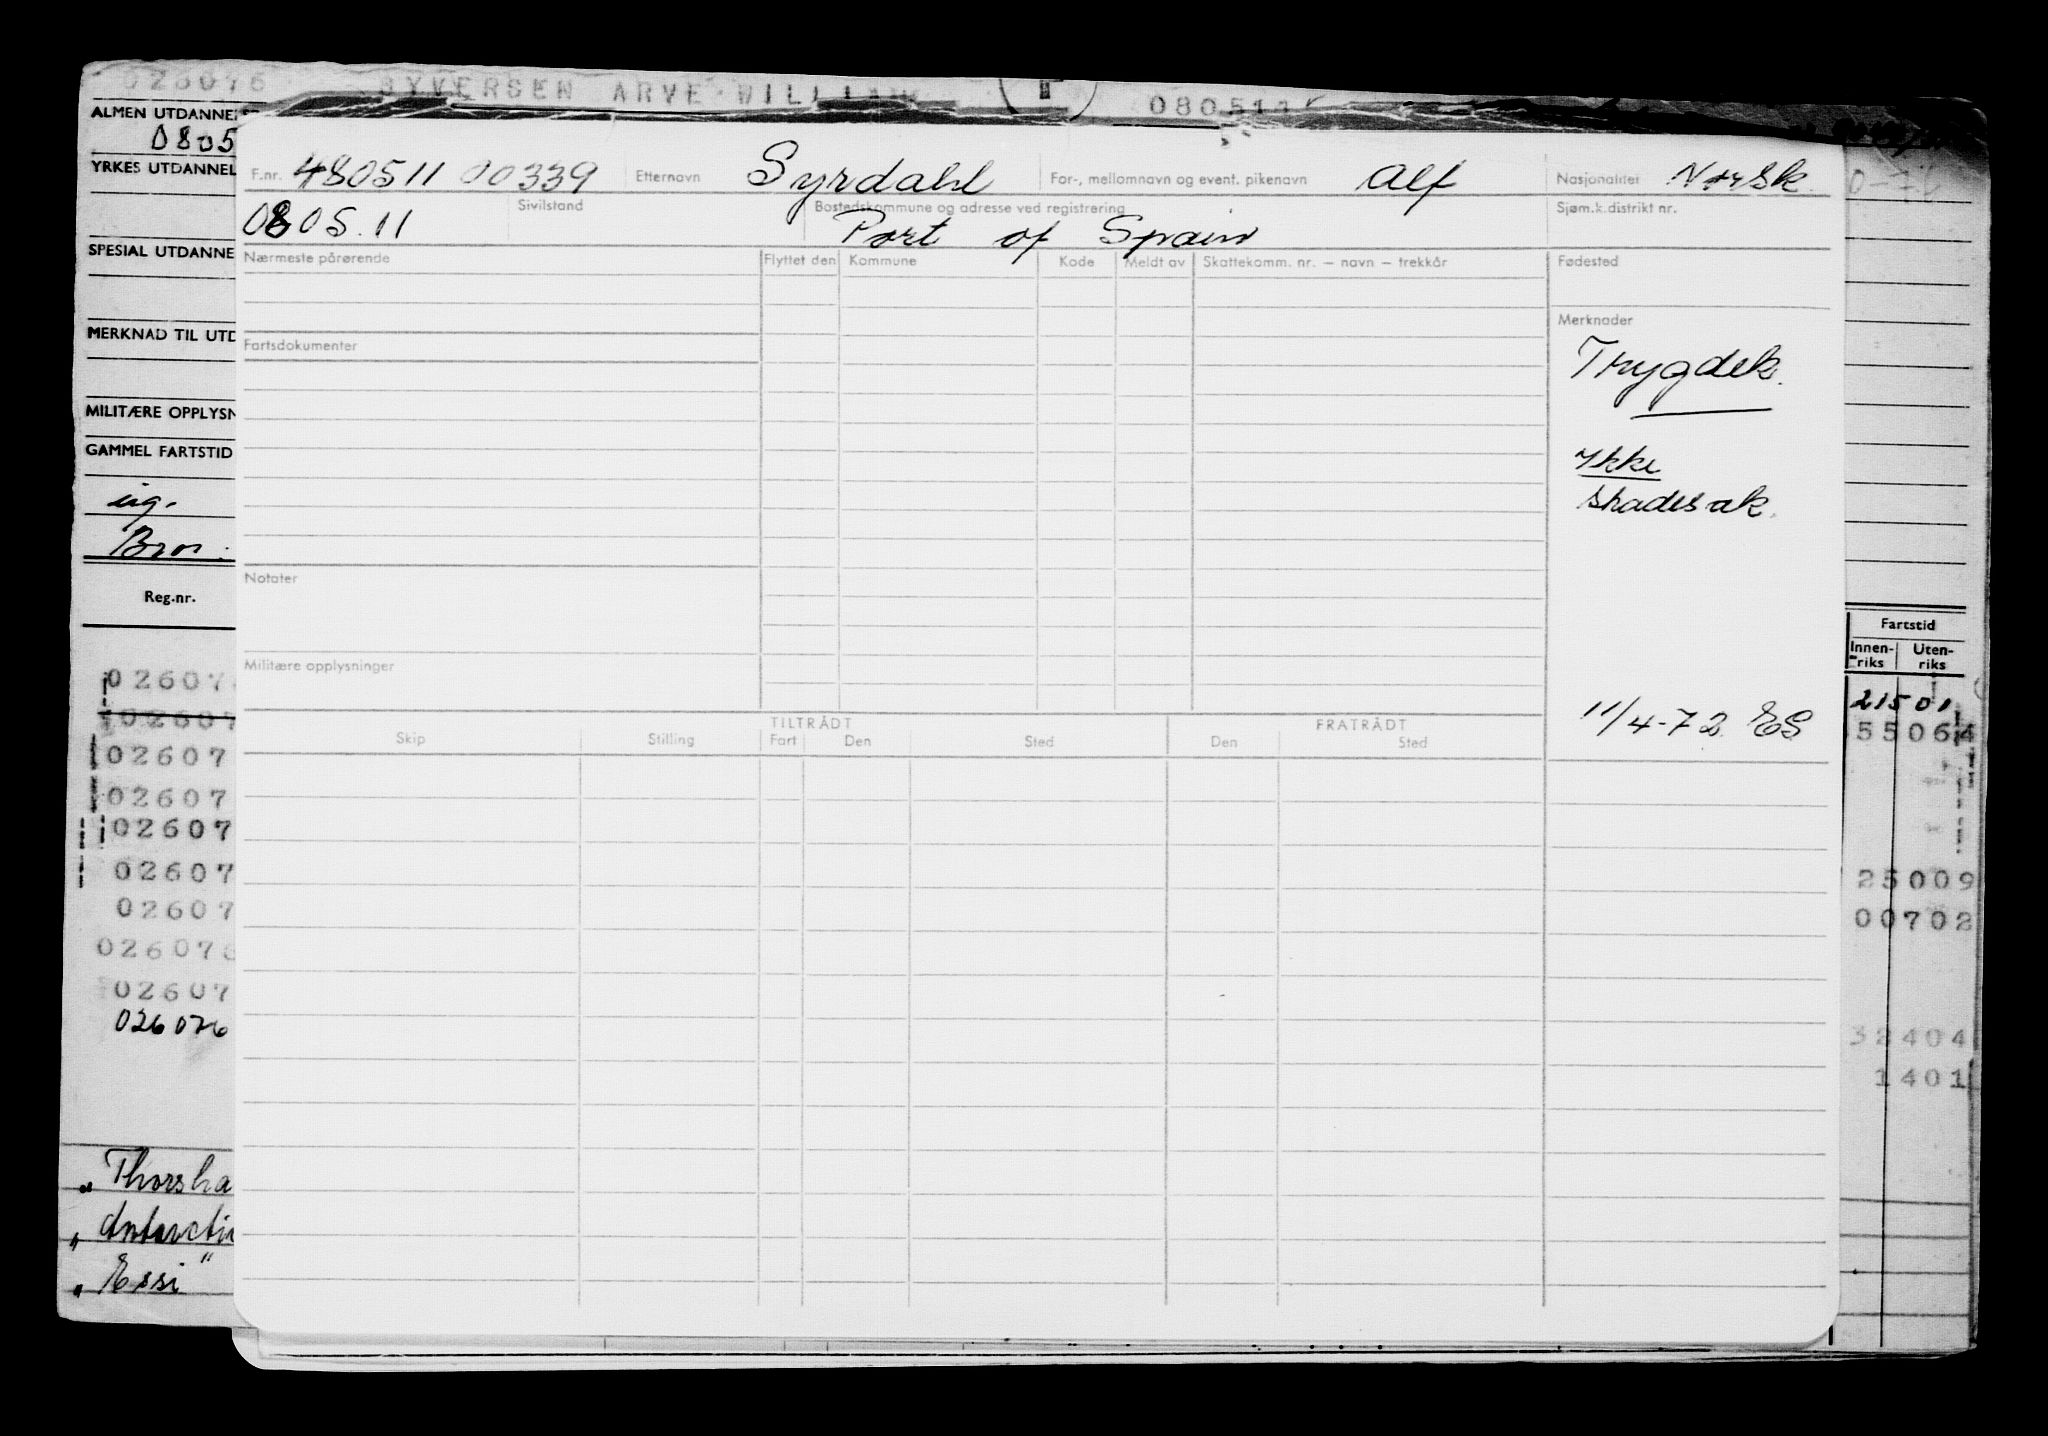 026076 SYVERSEN ARVE WILLIAM 080511
ALMEN UTDANNE
0805
YRKES UTDANNEL
SPESIAL UTDANNE
MERKNAD TIL UTD
MILITÆRE OPPLYSN
GAMMEL FARTSTID
Reg.nr.
02607
02607
02607
02607
02607
02607
02607
026076
02607
026076
„ Thorsha
„ Antarctic
„ Essi "
F.nr. 480511 00339 Etternavn Syrdahl For-, mellomnavn og event. pikenavn Alf Nasjonalitet Norsk.
080511 Sivilstand Bostedskommune og adresse ved registrering Port of Spain Sjøm.k.distrikt nr.
Nærmeste pårørende Flyttet den Kommune Kode Meldt av Skattekomm. nr. — navn — trekkår Fødested
Merknader
Fartsdokumenter
Trygdek.
Ikke
skadesak.
Notater
Militære opplysninger
11/4-72 ES
TILTRÅDT FRATRÅDT
Skip Stilling Fart Den Sted Den Sted
Fartstid
Innen-riks Uten-riks
21501
55064
25009
00702
32404
1401